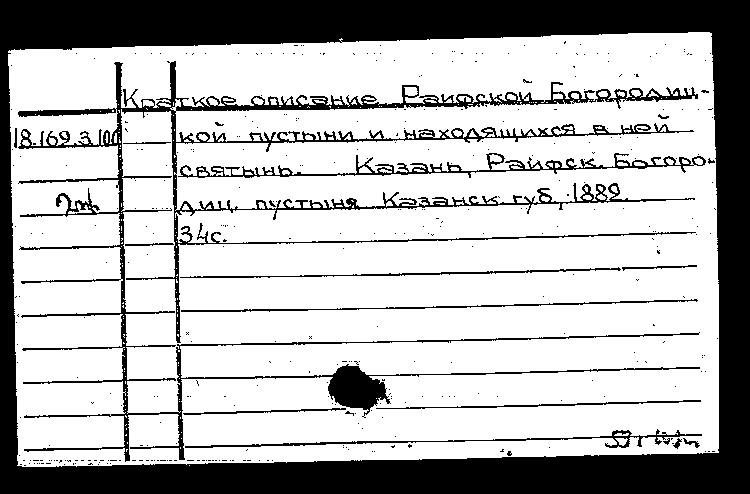 Краткое описание Раифской Богородиц-
18.169.3.100 кой пустыни и находящихся в ней
святынь. Казань, Раифск. Богоро-
диц. пустыня Казанск. губ., 1889.
34с.